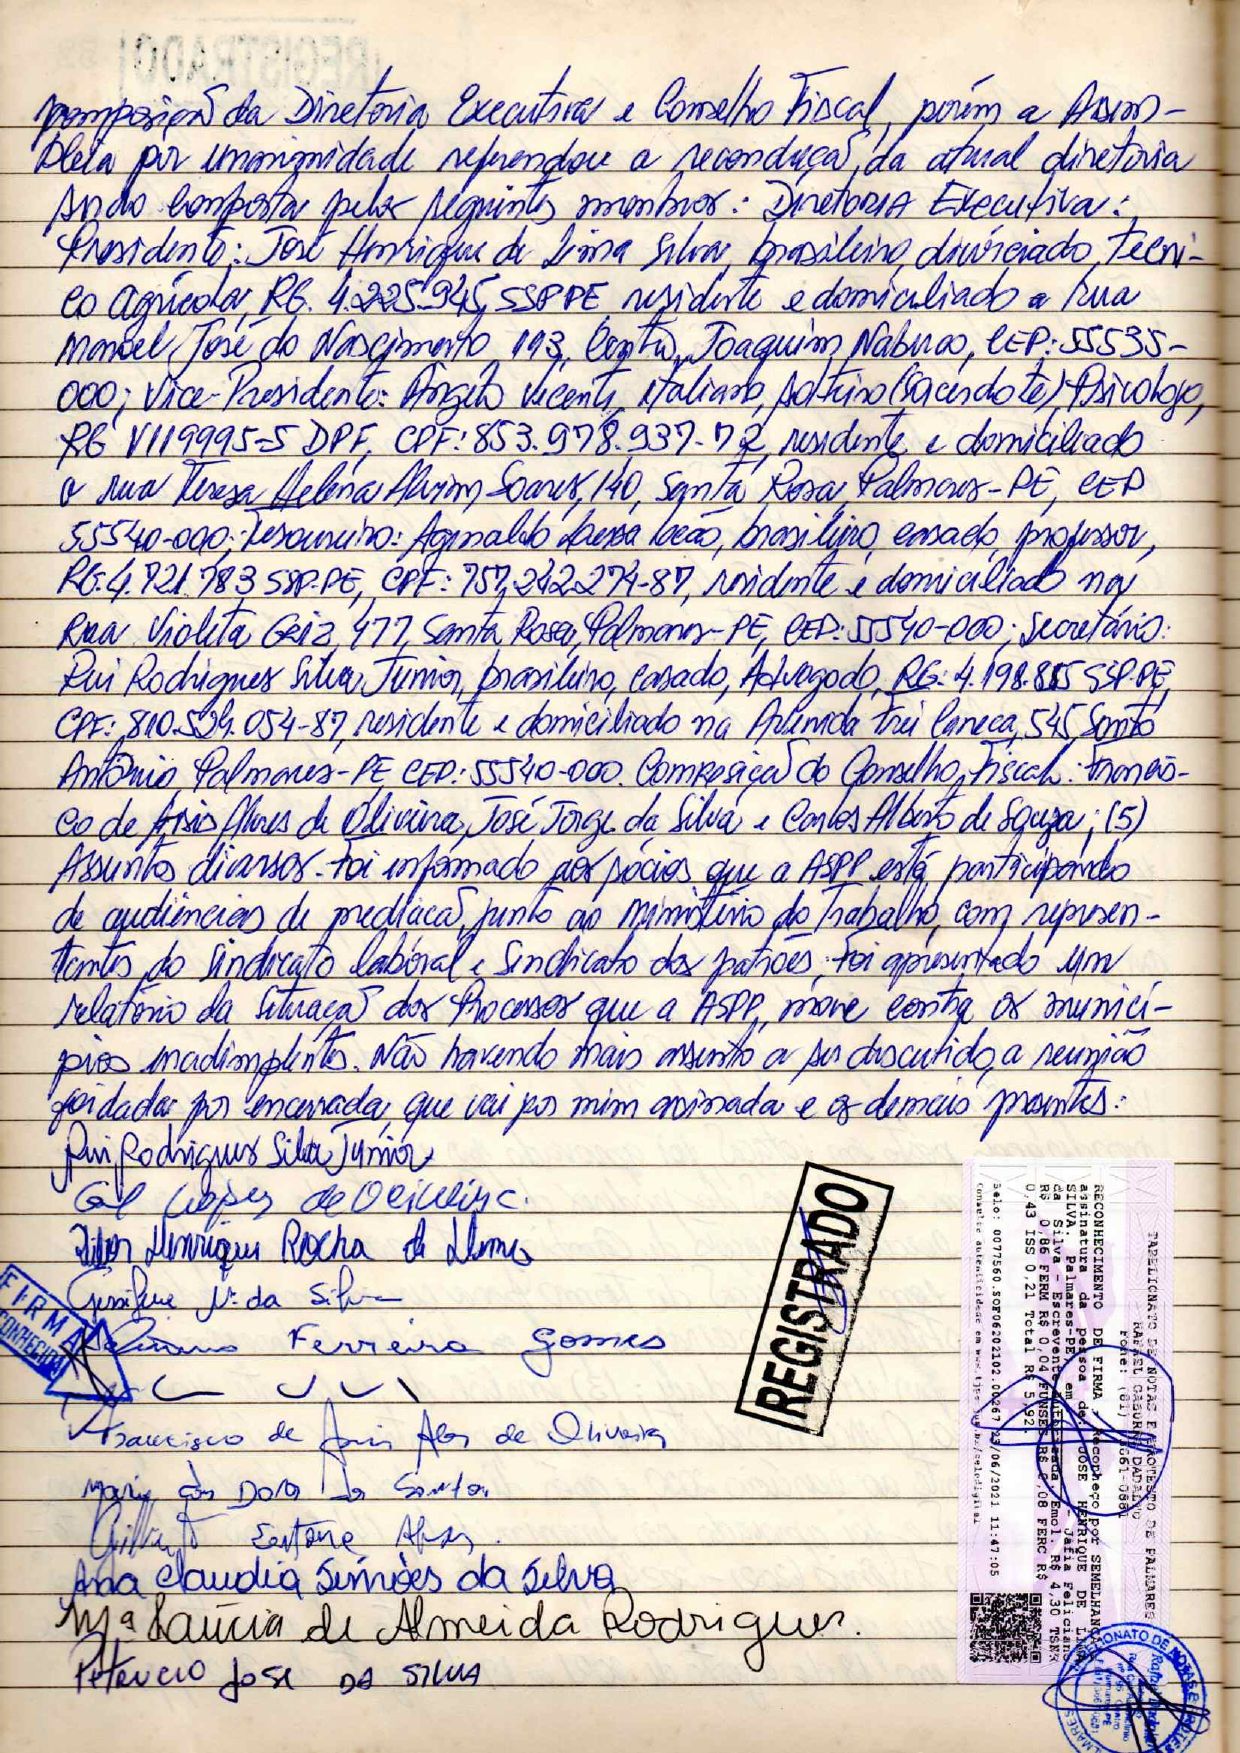 REGISTRADO
composição da Diretoria Executiva e Conselho Fiscal, porém a Assem-
bleia por unanimidade referendou a recondução da atual diretoria
sendo composta pelos seguintes membros: Diretoria Executiva:
Presidente: José Henrique de Lima Silva, brasileiro, divorciado, Técni-
co Agrícola, RG. 4.225.945 SSP PE residente e domiciliado a Rua
Manoel José do Nascimento, 193, Centro, Joaquim Nabuco, CEP: 55535-
000; Vice-Presidente: Ângelo Vicenti, italiano, solteiro (Sacerdote) Psicólogo,
RG V119995-5 DPF, CPF: 853.978.937-72, residente e domiciliado
a rua Teresa Helena Alvim Soares, 140, Santa Rosa, Palmares-PE, CEP
55540-000; Tesoureiro: Aginaldo leão, brasileiro, casado, professor,
RG: 4.721.783 SSP-PE, CPF: 757.242.274-87, residente e domiciliado na
Rua Violeta Griz, 477, Santa Rosa, Palmares-PE, CEP: 55540-000; Secretário:
Rui Rodrigues Silva Junior, brasileiro, casado, Advogado, RG: 4.198.815 SSP-PE,
CPF: 810.524.054-87, residente e domiciliado na Avenida Frei Caneca, 545, Santo
Antônio, Palmares-PE CEP: 55540-000. Composição do Conselho Fiscal: Francis-
co de Assis Alves de Oliveira, José Jorge da Silva e Carlos Alberto de Souza; (5)
Assuntos diversos - Foi informado aos sócios que a ASPP está participando
de audiências de mediação, junto ao Ministério do Trabalho, com represen-
tantes do Sindicato laboral e Sindicato dos patrões, Foi apresentado um
relatório da situação dos Processos que a ASPP, move contra os municí-
pios inadimplentes. Não havendo mais assunto a ser discutido, a reunião
foi dada por encerrada, que vai por mim assinada e os demais presentes:
Rui Rodrigues Silva Junior
Lopes de Oliveira.
Henrique Rocha de
Mª da Silva
Ferreira Gomes
Francisco de Assis Alves de Oliveira
Maria das Dores dos Santos
Alves
Ana Claudia Simões da Silva
Mª Laúcia de Almeida Rodrigues.
José DA SILVA
FIRMA
RECONHECIDA
REGISTRADO
TABELIONATO DE NOTAS E PROTESTO DE PALMARES
RAFAEL DADALTO
Fone: (81) 3661-0681
RECONHECIMENTO DE FIRMA - Reconheço por SEMELHANÇA
assinatura da pessoa de: JOSE HENRIQUE DE LIMA
SILVA. Palmares-PE, em - Jafia Feliciano
da Silva - Escrevente Autorizada. Emol. R$ 4,30 TSNR
R$ 0,86 FERM R$ 0,04 FUNSEG R$ 0,08 FERC R$
0,43 ISS 0,21 Total R$ 5,92.
Selo: 0077560.SOF06202102.00267 23/06/2021 11:47:05
Consulte autenticidade em www.tjpe.jus.br/selodigital
TABELIONATO DE NOTAS E PROTESTO
PALMARES